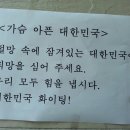 <가슴 아픈 대한민국>
절망 속에 잠겨있는 대한민국에
희망을 심어 주세요.
우리 모두 힘을 냅시다.
대한민국 화이팅!